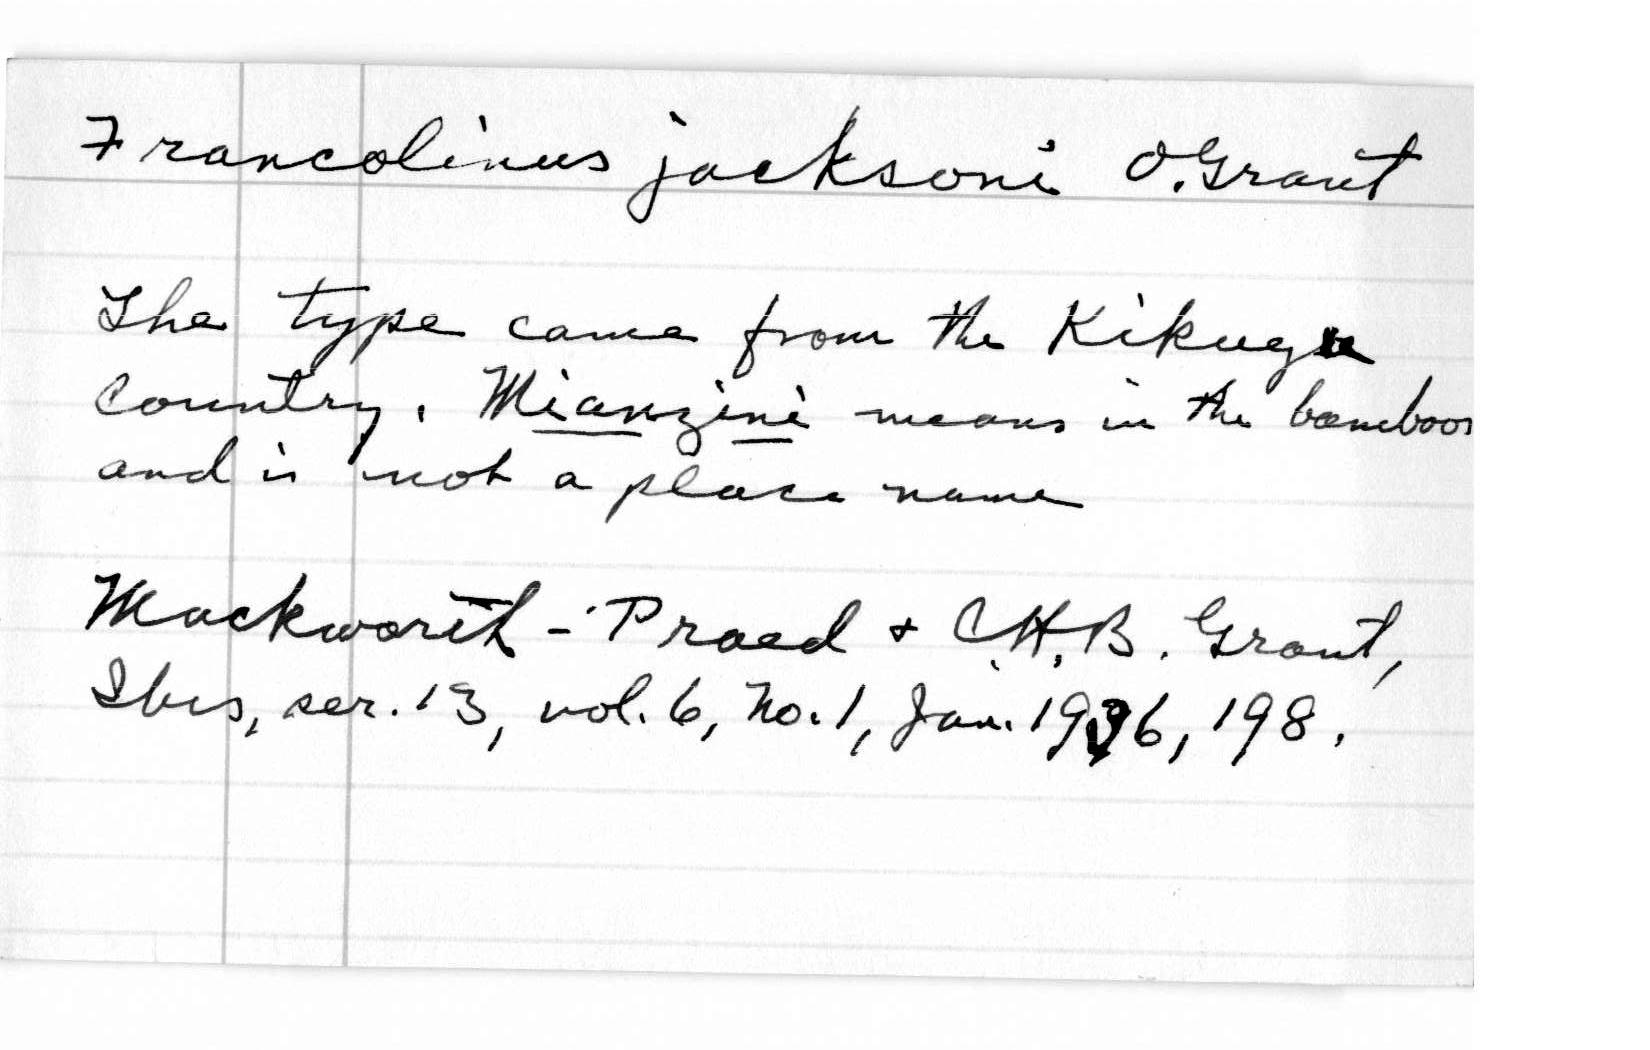 Francolinus jacksoni O.Grant
The type came from the Kikuyu
Country. Mianzini means in the bamboos
and is not a place name
Mackworth-Praed + C.H.B. Grant,
Ibis, ser. 13, vol. 6, No. 1, Jan. 1936, 198.